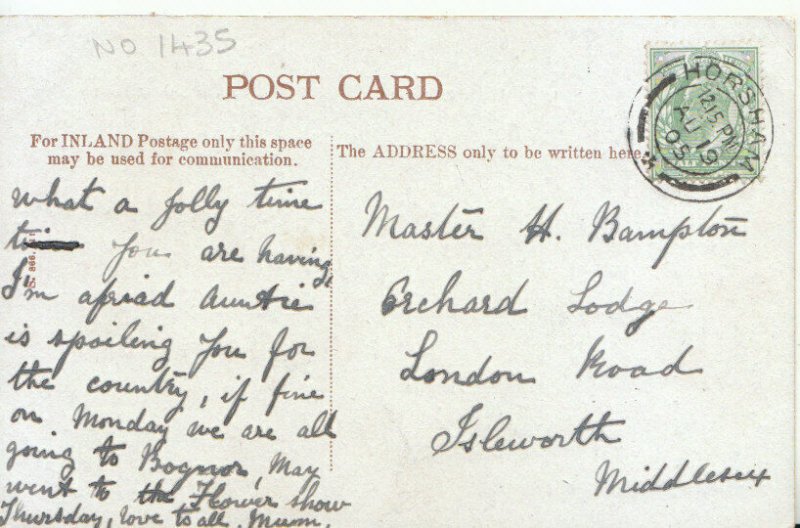 NO 1435
POST CARD
For INLAND Postage only this space
may be used for communication.
The ADDRESS only to be written here.
HORSHAM
12.15 PM
AU 19
05
what a jolly time
you are having,
I'm afriad Auntie
is spoiling you for
the country, if fine
on Monday we are all
going to Bognor, May
went to the Flower show
Thursday, love to all. Mum.
Master H. Bampton
Orchard Lodge
London Road
Isleworth
Middlesex